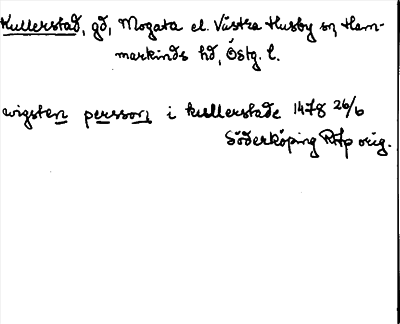 Kullerstad, gd, Mogata el. Västra Husby sn, Ham-
markinds hd, Östg. l.
wigsten persson i kullerstade 1478 26/6
Söderköping RAp orig.